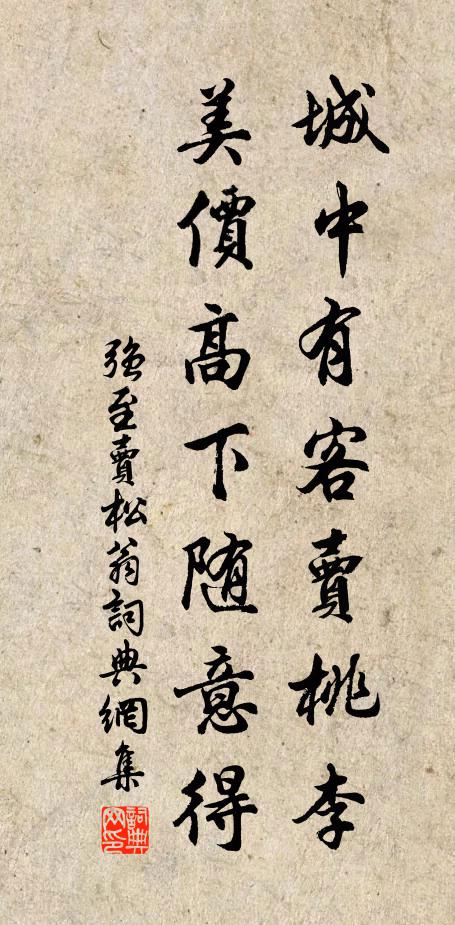 城中有客賣桃李
美價高下随意得
強至賣松翁詞典網集
詞典網印